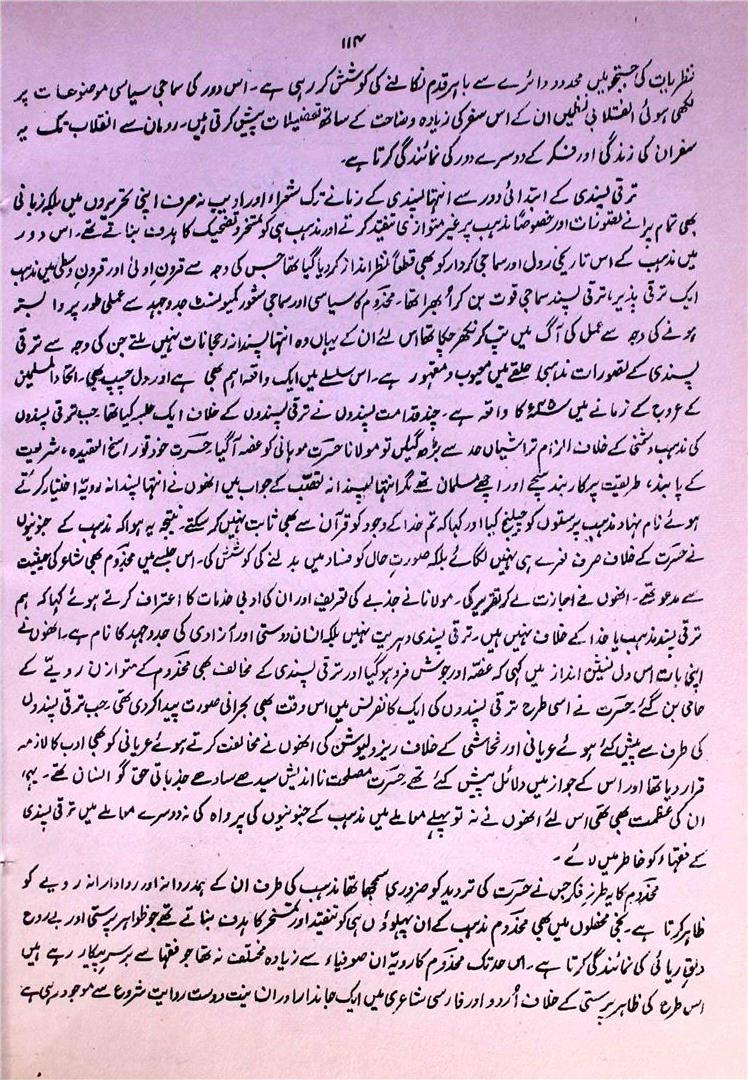 ۱۱۴
نظریات کی جستجو میں محدود دائرے سے باہر قدم نکالنے کی کوشش کر رہی ہے۔ اس دور کی سماجی سیاسی موضوعات پر
لکھی ہوئی انقلابی نظمیں ان کے اس سفر کی زیادہ وضاحت کے ساتھ تفصیلات پیش کرتی ہیں۔ رومان سے انقلاب تک یہ
سفر ان کی زندگی اور فکر کے دوسرے دور کی نمائندگی کرتا ہے۔
ترقی پسندی کے ابتدائی دور سے انتہا پسندی کے زمانے تک شعراء اور ادیب نہ صرف اپنی تحریروں میں بلکہ زبانی
بھی تمام پرانے تصورات اور خصوصاً مذہب پر غیر متوازی تنقید کرتے اور مذہب ہی کو تمسخر و تضحیک کا ہدف بناتے تھے۔ اس دور
میں مذہب کے اس تاریخی رول اور سماجی کردار کو بھی قطعاً نظر انداز کر دیا گیا تھا جس کی وجہ سے قرونِ اولیٰ اور قرونِ وسطیٰ میں مذہب
ایک ترقی پذیر، ترقی پسند سماجی قوت بن کر اُبھرا تھا۔ مخدوم کا سیاسی اور سماجی شعور کمیونسٹ جدوجہد سے عملی طور پر وابستہ
ہونے کی وجہ سے عمل کی آگ میں تپ کر نکھر چکا تھا اس لئے ان کے یہاں وہ انتہا پسندانہ رجحانات نہیں ملتے جن کی وجہ سے ترقی
پسندی کے تصورات مذہبی حلقے میں معیوب و مقہور رہے۔ اس سلسلے میں ایک واقعہ اہم بھی ہے اور دلچسپ بھی۔ اتحاد المسلمین
کے عروج کے زمانے میں ۴۵ء کا واقعہ ہے۔ چند قدامت پسندوں نے ترقی پسندوں کے خلاف ایک جلسہ کیا تھا۔ جب ترقی پسندوں
کی مذہب دشمنی کے خلاف الزام تراشیاں حد سے بڑھ گئیں تو مولانا حسرت موہانی کو غصہ آگیا۔ حسرت خود تو راسخ العقیدہ، شریعت
کے پابند، طریقت پر کاربند سچے اور اچھے مسلمان تھے مگر انتہا پسندانہ تعصب کے جواب میں انھوں نے انتہا پسندانہ رویہ اختیار کرتے
ہوئے نام نہاد مذہب پرستوں کو چیلنج کیا اور کہا کہ تم خدا کے وجود کو قرآن سے بھی ثابت نہیں کر سکتے۔ نتیجہ یہ ہوا کہ مذہب کے جنونیوں
نے حسرت کے خلاف صرف نعرے ہی نہیں لگائے بلکہ صورتِ حال کو فساد میں بدلنے کی کوشش کی۔ اس جلسے میں مخدوم بھی شاعر کی حیثیت
سے مدعو تھے۔ انھوں نے اجازت لے کر تقریر کی۔ مولانا نے جذبے کی تعریف اور ان کی ادبی خدمات کا اعتراف کرتے ہوئے کہا کہ ہم
ترقی پسند مذہب یا خدا کے خلاف نہیں ہیں۔ ترقی پسندی دہریت نہیں بلکہ انسان دوستی اور آزادی کی جدوجہد کا نام ہے۔ انھوں نے
اپنی بات اس دل نشین انداز میں کہی کہ غصہ اور جوش فرو ہوگیا اور ترقی پسندی کے مخالف بھی مخدوم کے متوازن رویے کے
حامی بن گئے۔ حسرت نے اسی طرح ترقی پسندوں کی ایک کانفرنس میں اس وقت بھی بحرانی صورت پیدا کردی تھی، جب ترقی پسندوں
کی طرف سے پیش کئے ہوئے عریانی اور فحاشی کے خلاف ریزولیوشن کی انھوں نے مخالفت کرتے ہوئے عریانی کو بھی ادب کا لازمہ
قرار دیا تھا اور اس کے جواز میں دلائل پیش کئے تھے۔ حسرت مصلحت نا اندیش سیدھے سادھے جذباتی حق گو انسان تھے۔ یہی
ان کی عظمت بھی تھی اس لئے انھوں نے نہ تو پہلے معاملے میں مذہب کے جنونیوں کی پرواہ کی نہ دوسرے معاملے میں ترقی پسندی
کے فقہاء کو خاطر میں لائے۔
مخدوم کا یہ طرزِ فکر جس نے حسرت کی تردید کو ضروری سمجھا تھا مذہب کی طرف ان کے ہمدردانہ اور روادارانہ رویے کو
ظاہر کرتا ہے۔ نجی محفلوں میں بھی مخدوم مذہب کے ان پہلوؤں ہی کو تنقید اور تمسخر کا ہدف بناتے تھے جو ظواہر پرستی اور بے روح
ریائی کی نمائندگی کرتا ہے۔ اس حد تک مخدوم کا رویہ ان صوفیاء سے زیادہ مختلف نہ تھا جو فقہا سے برسرِ پیکار رہے ہیں
اس طرح کی ظاہر پرستی کے خلاف اُردو اور فارسی شاعری میں ایک جاندار اور انسانیت دوست روایت شروع سے موجود رہی ہے۔